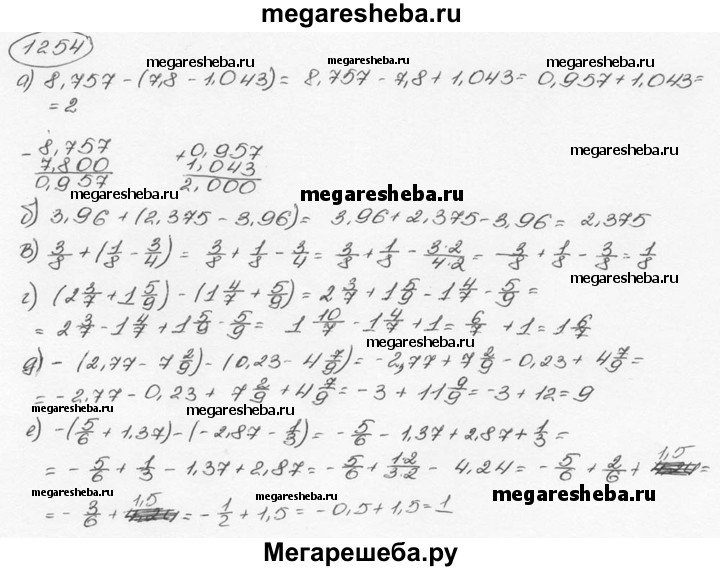 megaresheba.ru
1254
megaresheba.ru megaresheba.ru megaresheba.ru
а) 8,757 - (7,8 - 1,043) = 8,757 - 7,8 + 1,043 = 0,957 + 1,043 =
= 2
- 8,757 + 0,957 megaresheba.ru
7,800 1,043
0,957 2,000
megaresheba.ru megaresheba.ru
б) 3,96 + (2,375 - 3,96) = 3,96 + 2,375 - 3,96 = 2,375
в) 3/8 + (1/8 - 3/4) = 3/8 + 1/8 - 3/4 = 3/8 + 1/8 - 3·2/4·2 = 3/8 + 1/8 - 3/8 = 1/8
megaresheba.ru
г) (2 3/7 + 1 5/9) - (1 4/7 + 5/9) = 2 3/7 + 1 5/9 - 1 4/7 - 5/9 =
= 2 3/7 - 1 4/7 + 1 5/9 - 5/9 = 1 10/7 - 1 4/7 + 1 = 6/7 + 1 = 1 6/7
megaresheba.ru
д) - (2,77 - 7 2/9) - (0,23 - 4 7/9) = -2,77 + 7 2/9 - 0,23 + 4 7/9 =
= -2,77 - 0,23 + 7 2/9 + 4 7/9 = -3 + 11 9/9 = -3 + 12 = 9
megaresheba.ru megaresheba.ru megaresheba.ru
е) - (5/6 + 1,37) - (-2,87 - 1/3) = - 5/6 - 1,37 + 2,87 + 1/3 =
= - 5/6 + 1/3 - 1,37 + 2,87 = - 5/6 + 1·2/3·2 - 4,24 = - 5/6 + 2/6 + 1,5 =
megaresheba.ru megaresheba.ru megaresheba.ru
= - 3/6 + 1,5 = - 1/2 + 1,5 = -0,5 + 1,5 = 1
Мегарешеба.ру